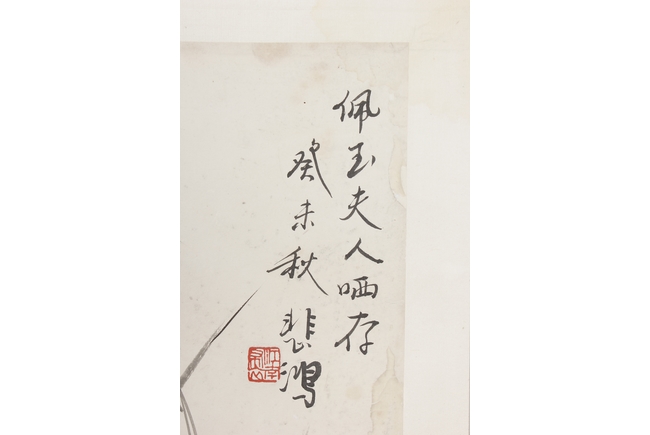 佩玉夫人哂存
癸未秋 悲鸿